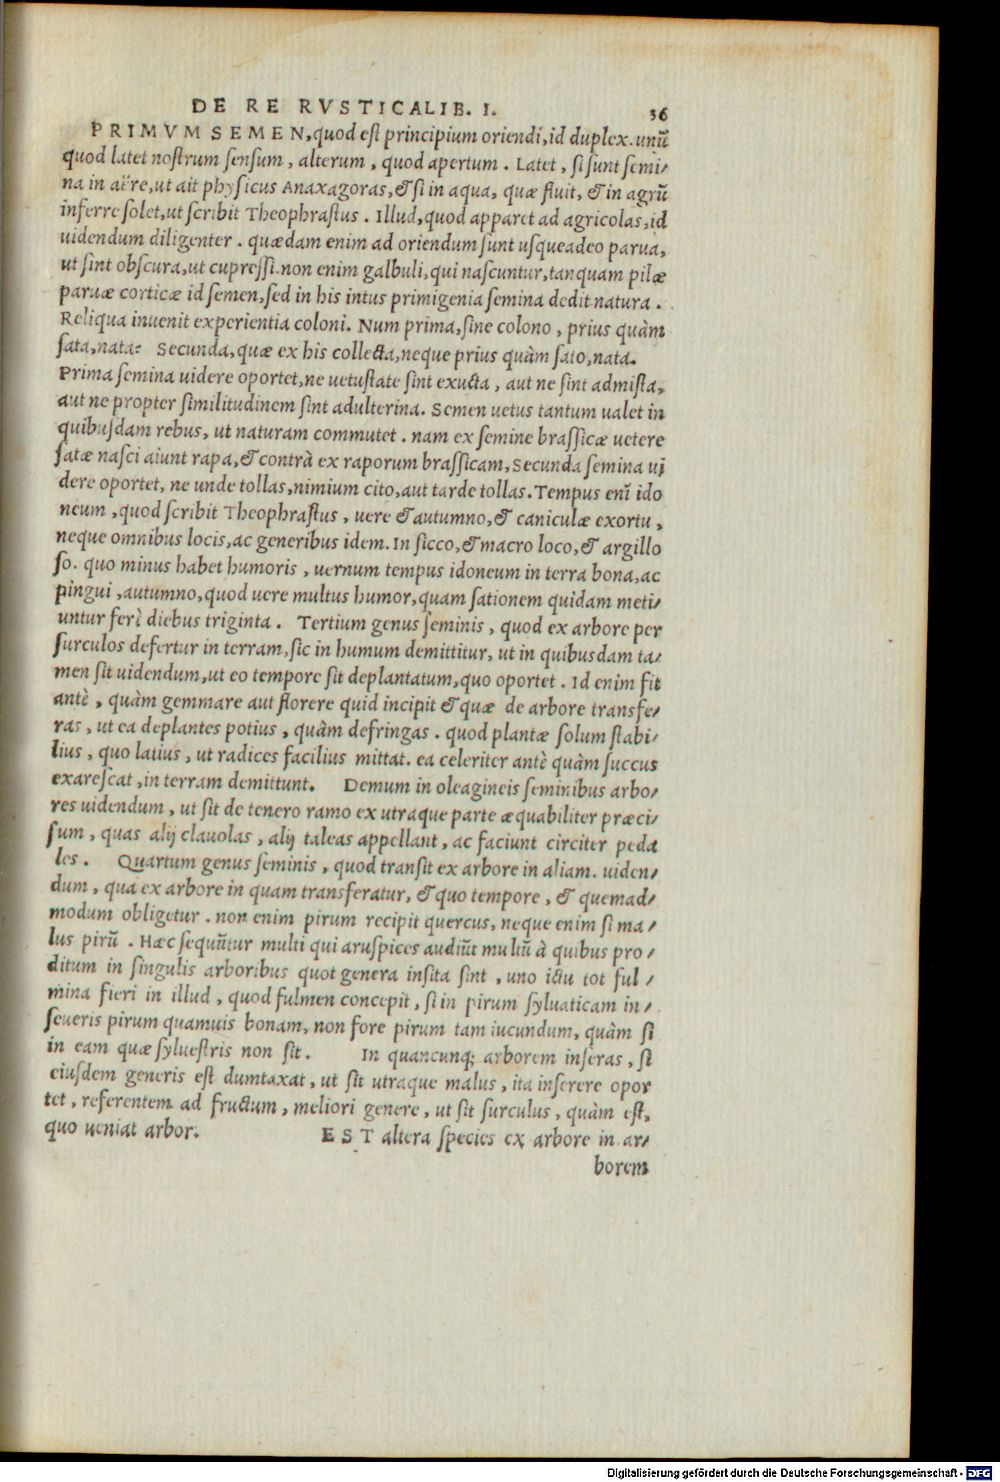 DE RE RVSTICA LIB. I. 36
PRIMVM SEMEN, quod eſt principium oriendi, id duplex. unū
quod latet noſtrum ſenſum, alterum, quod apertum. Latet, ſi ſunt ſemi/
na in aëre, ut ait phyſicus Anaxagoras, & ſi in aqua, quæ fluit, & in agrū
inferre ſolet, ut ſcribit Theophraſtus. Illud, quod apparet ad agricolas, id
uidendum diligenter. quædam enim ad oriendum ſunt uſqueadeo parua,
ut ſint obſcura, ut cupreſſi. non enim galbuli, qui naſcuntur, tanquam pilæ
paruæ corticæ id ſemen, ſed in his intus primigenia ſemina dedit natura.
Reliqua inuenit experientia coloni. Num prima, ſine colono, prius quàm
ſata, nata: Secunda, quæ ex his collecta, neque prius quàm ſato, nata.
Prima ſemina uidere oportet, ne uetuſtate ſint exucta, aut ne ſint admiſta,
aut ne propter ſimilitudinem ſint adulterina. Semen uetus tantum ualet in
quibuſdam rebus, ut naturam commutet. nam ex ſemine braſſicæ uetere
ſatæ naſci aiunt rapa, & contrà ex raporum braſſicam, Secunda ſemina ui
dere oportet, ne unde tollas, nimium cito, aut tarde tollas. Tempus enī ido
neum, quod ſcribit Theophraſtus, uere & autumno, & caniculæ exortu,
neque omnibus locis, ac generibus idem. In ſicco, & macro loco, & argillo
ſo. quo minus habet humoris, uernum tempus idoneum in terra bona, ac
pingui, autumno, quod uere multus humor, quam ſationem quidam meti/
untur ferè diebus triginta. Tertium genus ſeminis, quod ex arbore per
ſurculos defertur in terram, ſic in humum demittitur, ut in quibusdam ta/
men ſit uidendum, ut eo tempore ſit deplantatum, quo oportet. Id enim fit
antè, quàm gemmare aut florere quid incipit & quæ de arbore transfe/
ras, ut ea deplantes potius, quàm defringas. quod plantæ ſolum ſtabi/
lius, quo latius, ut radices facilius mittat. ea celeriter antè quàm ſuccus
exareſcat, in terram demittunt. Demum in oleagineis ſeminibus arbo/
res uidendum, ut ſit de tenero ramo ex utraque parte æquabiliter præci/
ſum, quas alij clauolas, alij taleas appellant, ac faciunt circiter peda
les. Quartum genus ſeminis, quod tranſit ex arbore in aliam. uiden/
dum, qua ex arbore in quam transferatur, & quo tempore, & quemad/
modum obligetur. non enim pirum recipit quercus, neque enim ſi ma/
lus pirū. Hæc ſequūtur multi qui aruſpices audiūt multū à quibus pro/
ditum in ſingulis arboribus quot genera inſita ſint, uno ictu tot ful/
mina fieri in illud, quod fulmen concepit, ſi in pirum ſyluaticam in/
ſeueris pirum quamuis bonam, non fore pirum tam iucundum, quàm ſi
in eam quæ ſylueſtris non ſit. In quancunq; arborem inſeras, ſi
eiuſdem generis eſt dumtaxat, ut ſit utraque malus, ita inſerere opor
tet, referentem ad fructum, meliori genere, ut ſit ſurculus, quàm eſt,
quo ueniat arbor. EST altera ſpecies ex arbore in ar/
borem
Digitalisierung gefördert durch die Deutsche Forschungsgemeinschaft - DFG